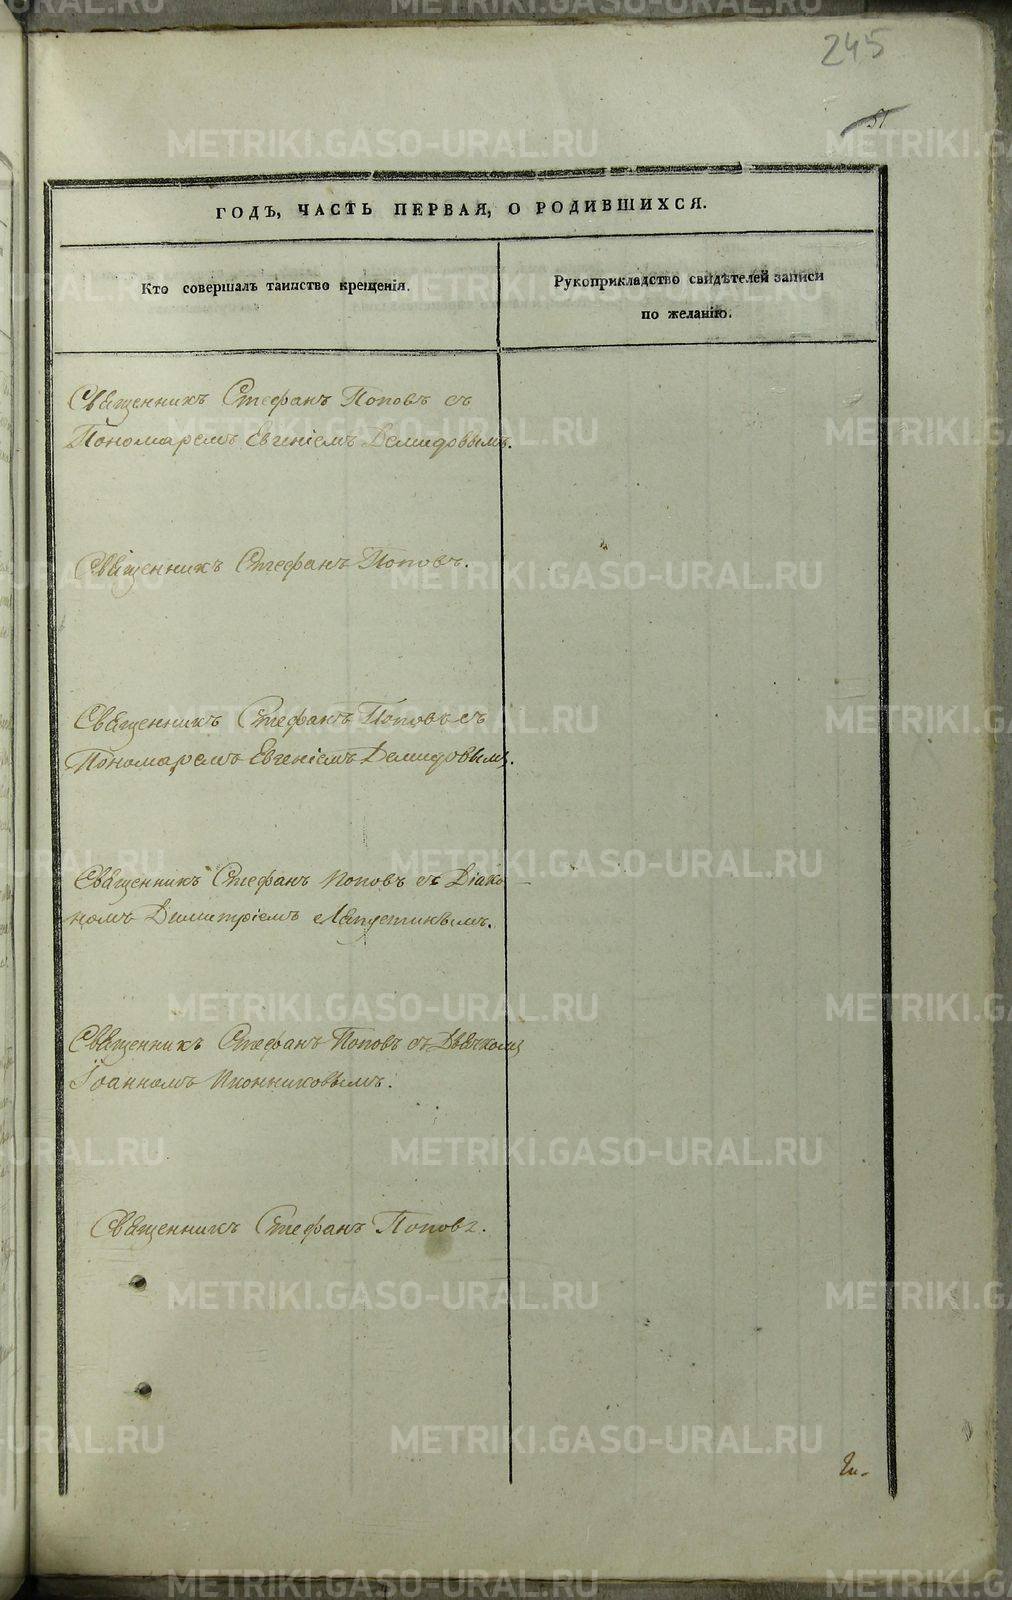 245
51
ГОДЪ, ЧАСТЬ ПЕРВАЯ, О РОДИВШИХСЯ.
Кто совершалъ таинство крещенія.
Рукоприкладство свидѣтелей записи
по желанію.
Священникъ Стефанъ Поповъ съ
Пономаремъ Евгеніемъ Демидовымъ.
Священникъ Стефанъ Поповъ.
Священникъ Стефанъ Поповъ съ
Пономаремъ Евгеніемъ Демидовымъ.
Священникъ Стефанъ Поповъ съ Діако-
номъ Димитріемъ Лапустинымъ.
Священникъ Стефанъ Поповъ съ Дьячкомъ
Іоанномъ Иконниковымъ.
Священникъ Стефанъ Поповъ.
METRIKI.GASO-URAL.RU